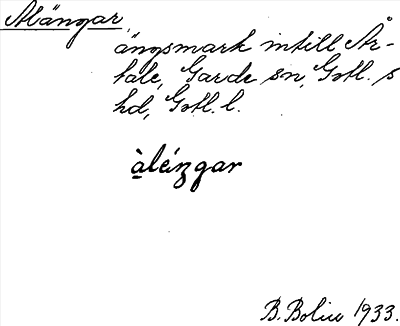 Alängar,
ängsmark intill År-
tale, Garde sn, Gotl. s
hd, Gotl. l.
àléŋgar
B. Bolin 1933.